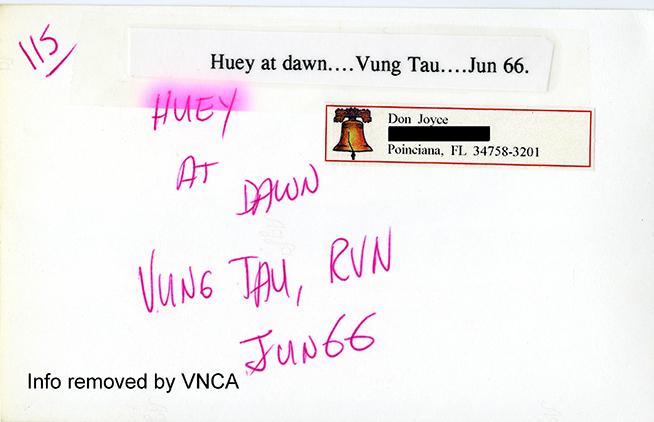 115
Huey at dawn....Vung Tau....Jun 66.
HUEY
AT
DAWN
VUNG TAU, RVN
JUN 66
Don Joyce
Poinciana, FL 34758-3201
Info removed by VNCA